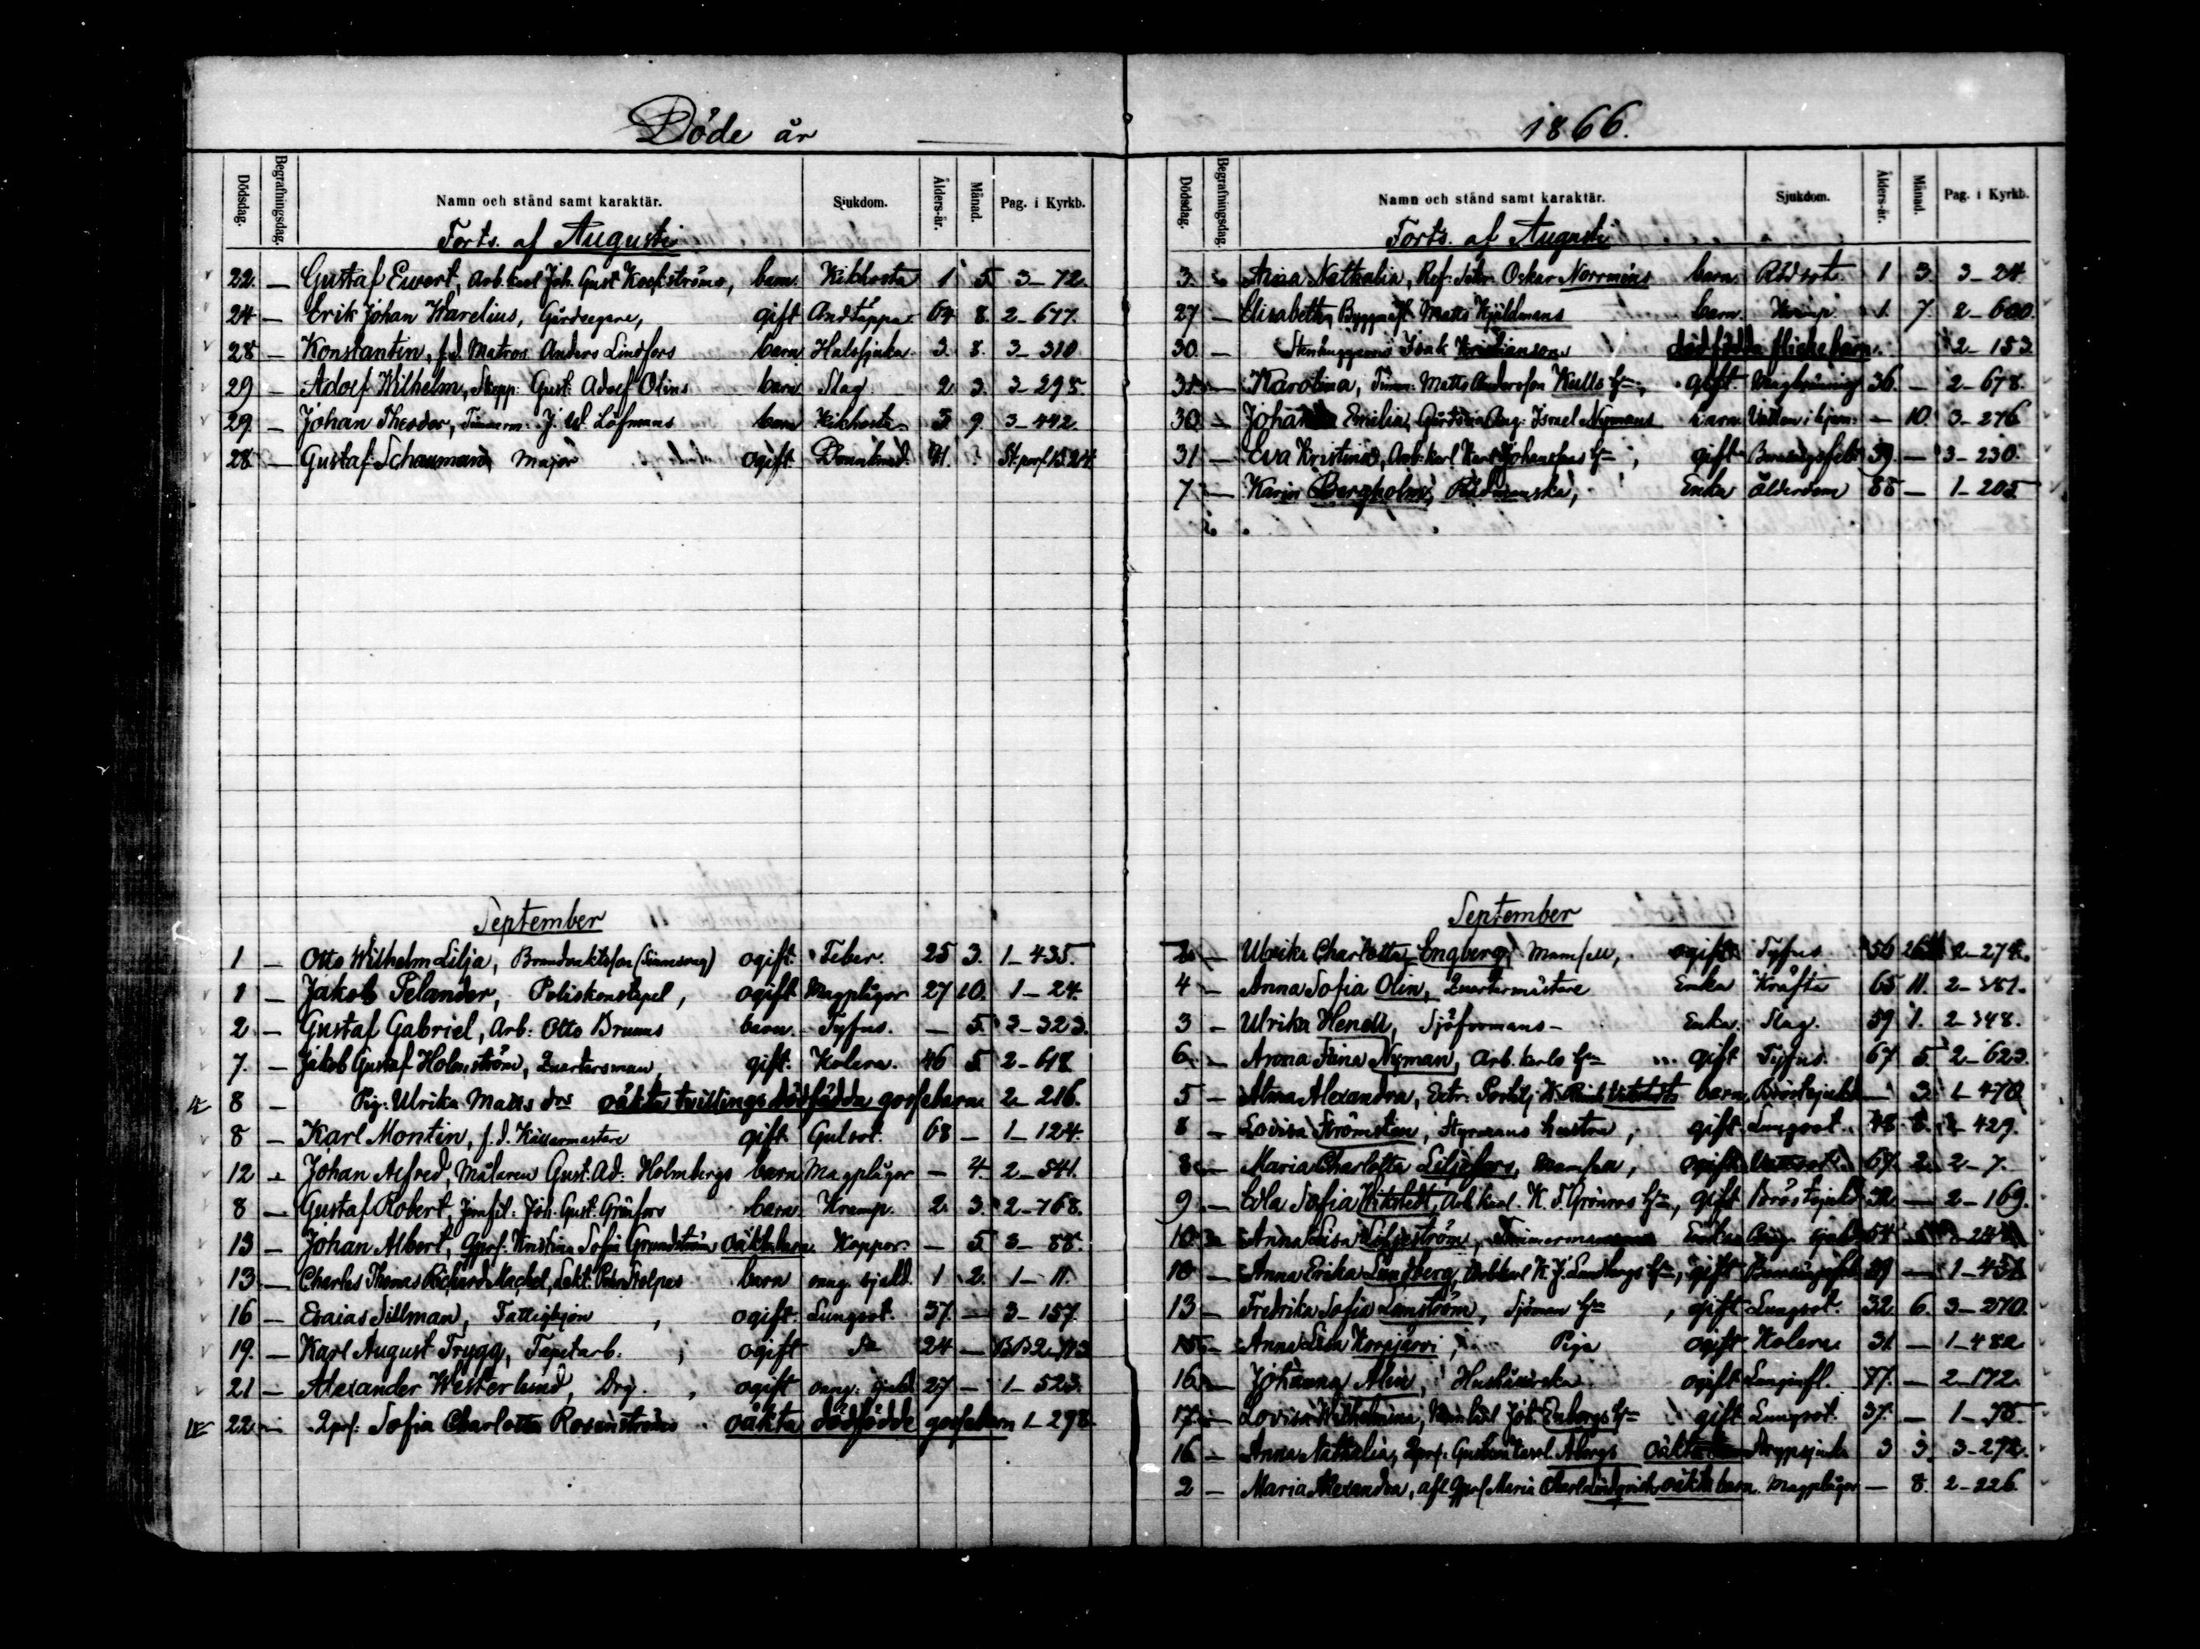 Döde år
Dödsdag. Begrafningsdag. Namn och stånd samt karaktär. Sjukdom. Ålders-år. Månad. Pag. i Kyrkb.
Forts. af Augusti
22. — Gustaf Ewert, Arb. karl Joh. Gust. barn. Kikhosta 1 5. 3—72.
24 — Erik Johan Warelius, Gårdsegare, gift Andtäppa. 64 8. 2—677.
28 — Konstantin, f.d. Matros Anders Lindfors barn Halssjuka. 3. 8. 3—310
29 — Adolf Wilhelm, Skepp. Gust. Adolf Olins barn Slag 2. 3. 3—295.
29. — Johan Theodor, Timmerm. J. W. Löfmans barn Kikhosta 3. 9. 3—442.
28. — Gustaf Schauman, Major ogift.
September
1 — Otto Wilhelm Lilja, ogift. Feber. 25 3. 1—435.
1 — Jakob Pelander, Poliskonstapel, ogift Magplågor 27 10. 1—24.
2 — Gustaf Gabriel, Arb. Otto Bruuns barn. Tyfus. — 5. 3—323.
7. — Jakob Gustaf Holmström, Quartersman, gift. Kolera. 46 5. 2—618
8 — Pig. Ulrika Matts drs oäkta tvillings dödfödda gossebarn. 2—216.
8 — Karl Montin, f.d. Källarmästare gift. Gulsot. 68 — 1—124.
12 — Johan Alfred, Målaren Gust. Ad. Holmbergs barn Magplågor — 4. 2—541.
8 — Gustaf Robert, Joh. Gust. Grönfors barn. Kramp. 2. 3. 2—768.
13 — Johan Albert, Qprs. Kristina Sofia Grundström oäkta barn. Koppor. — 5. 3—88.
13. — Charles Thomas Richard Machel, barn onäg. sjukd. 1 2. 1—11.
16 — Esaias Sillman, Fattighjon, ogift. Lungsot. 37. — 3—157.
19. — Karl August Trygg, Tapetarb., ogift do 24 —
21 — Alexander Westerlund, Drg., ogift onäg. sjukd. 27 — 1—523.
22 — Qprs. Sofia Charlotta Rosenströms oäkta dödfödde gossebarn 1—298.
1866.
Dödsdag. Begrafningsdag. Namn och stånd samt karaktär. Sjukdom. Ålders-år. Månad. Pag. i Kyrkb.
Forts. af Augusti
3. Anna Nathalia, Oskar Norrméns barn. Rödsot 1 3. 3—24.
27 — Elisabeth, Byggmäst. Matts Kjäldmans barn. Kramp. 1. 7. 2—600.
30. — Stenhuggaren Isak Kristiansons dödfödda flickebarn. 2—153.
Karolina, Timm. Matts Anderson Kulls Hru, gift 36. — 2—678.
30. — Emilia, Israel Nymans barn — 10. 3—276
31 — Eva Kristina, Arb. karl Karl Johansons Hru, gift 39. — 3—230.
7. — Karin Bergholm, Rådmanska, Enka Ålderdom 88 — 1—205
September
Ulrika Charlotta Engberg, Mamsell, ogift Tyfus 56 2—274.
4 — Anna Sofia Olin, Quartermästare Enka Kräfta 65 11. 2—381.
3 — Ulrika Henell, Sjöfromans- Enka. Slag. 59 1. 2—348.
6 — Anna Stina Nyman, Arb. karls Hru gift Tyfus. 67. 5. 2—623.
5 — Alma Alexandra, barn. Bröstsjukd — 3. 1—470.
8 — Lovisa Strömsten, Styrmans hustru, gift Lungsot. 48 8. 429.
Maria Charlotta Liljefors, Mamsell, ogift 67. 2. 2—7.
9 — Edla Sofia Wikstedt, Arb. karl. K. F. Grönroos Hru, gift Bröstsjukd 32. — 2—169.
10 Anna Lisa Liljeström, Timmermans Enka
10 — Anna Erika Lundberg, Arb karl K. J. Lundbergs Hru, gift 39 — 1—
13 — Fredrika Sofia Lemström, Sjöman Hru, gift Lungsot. 32. 6. 3—270.
15 — Anna Lisa Korpjärvi, Piga ogift Kolera 31. — 1—482
16 — Johanna Alin, Hushållerska ogift Lunginfl. 77. — 2—172.
17. — Lovisa Wilhelmina, Joh. Enbergs Hru gift Lungsot. 37. — 1—75.
16 — Anna Nathalia, Qprs. Åbergs oäkta Strypsjuka 3 3. 3—272.
2 — Maria Alexandra, afl. Qprs. Maria Charl. Lindqvists oäkta barn. Magplågor — 8. 2—226.